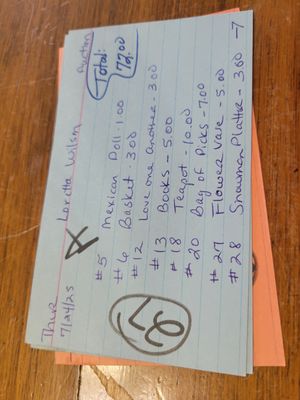 Thur
7/24/25
Loretta Wilson
Auction
Total:
72.00
#5 Mexican Doll 1.00
#6 Basket - 3.00
#12 Love one Another - 3.00
#13 Books - 5.00
#18 Teapot - 10.00
#20 Bag of Picks - 7.00
#27 Flower Vase - 5.00
#28 Snowman Platter - 3.00
37